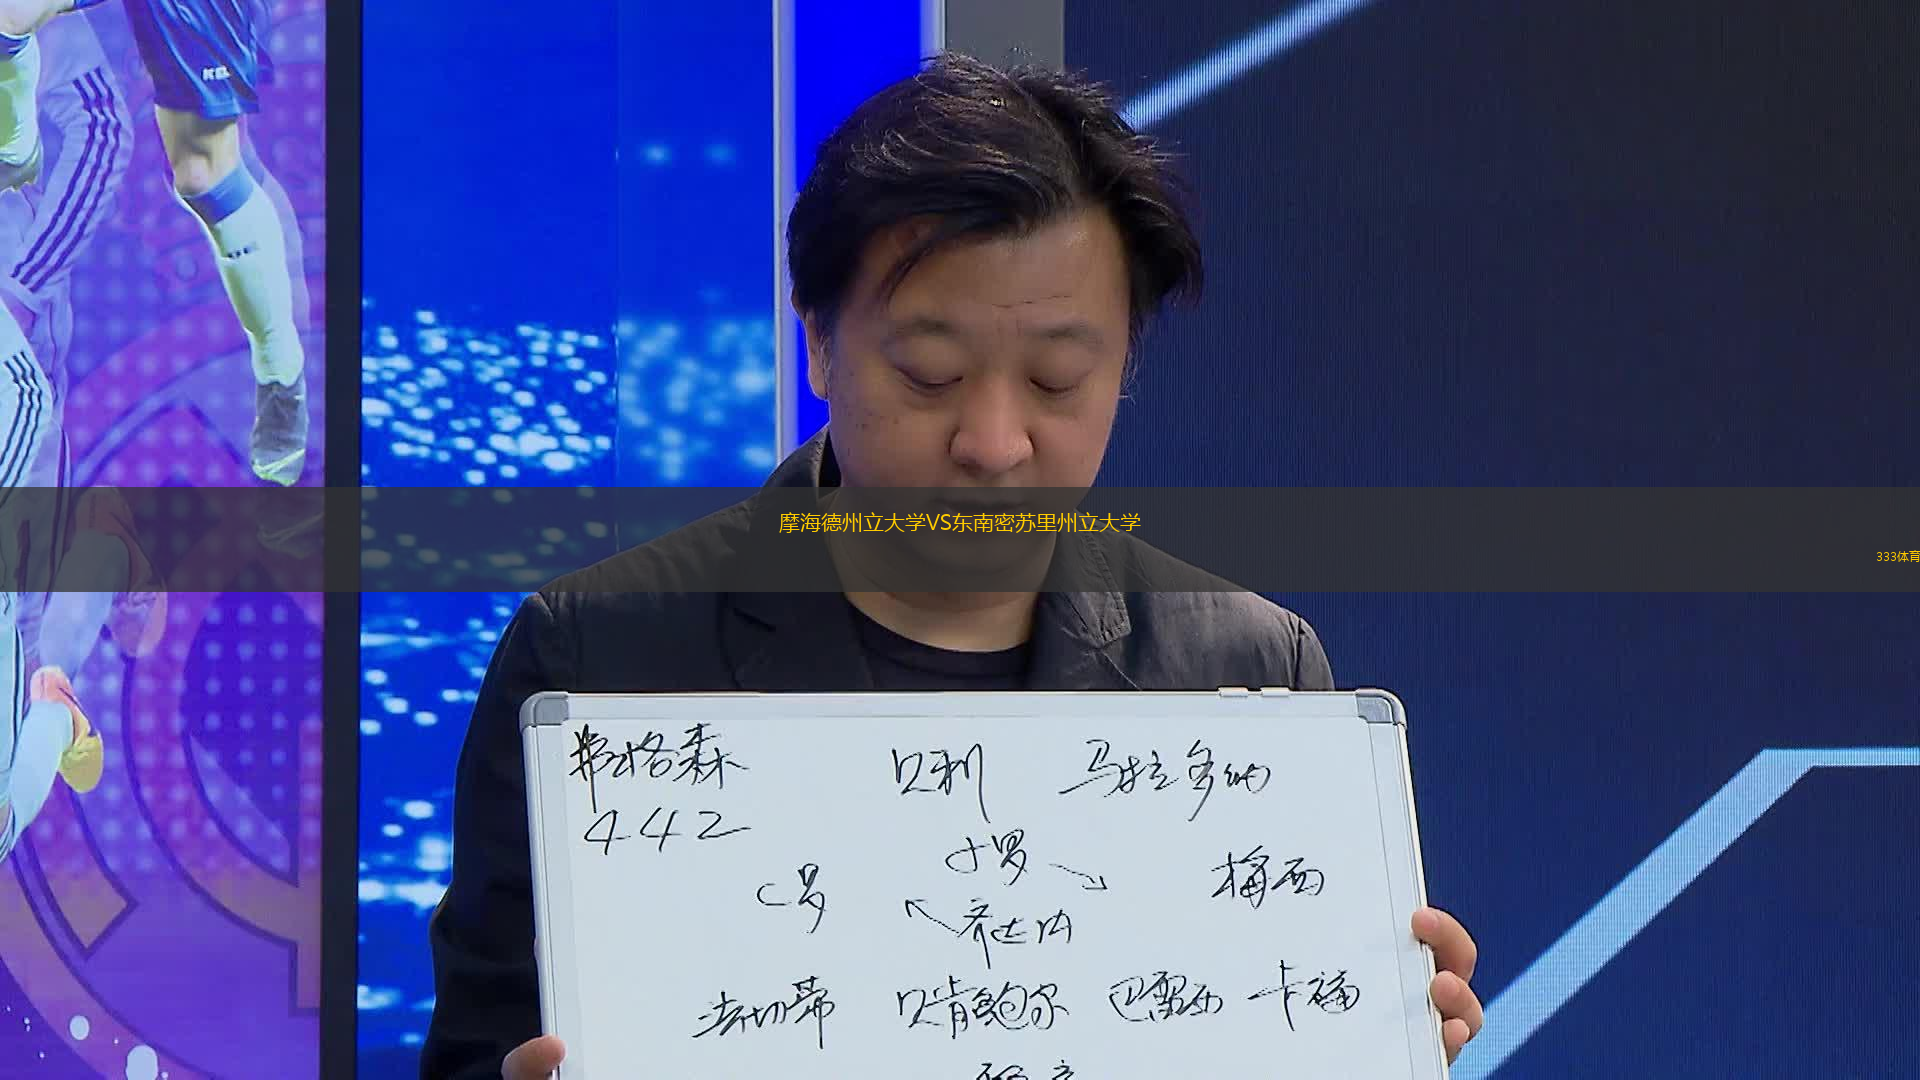 KEL
摩海德州立大学VS东南密苏里州立大学
333体育
弗格森 贝利 马拉多纳
442
小罗
C罗 梅西
齐达内
法切蒂 贝肯鲍尔 巴雷西 卡福